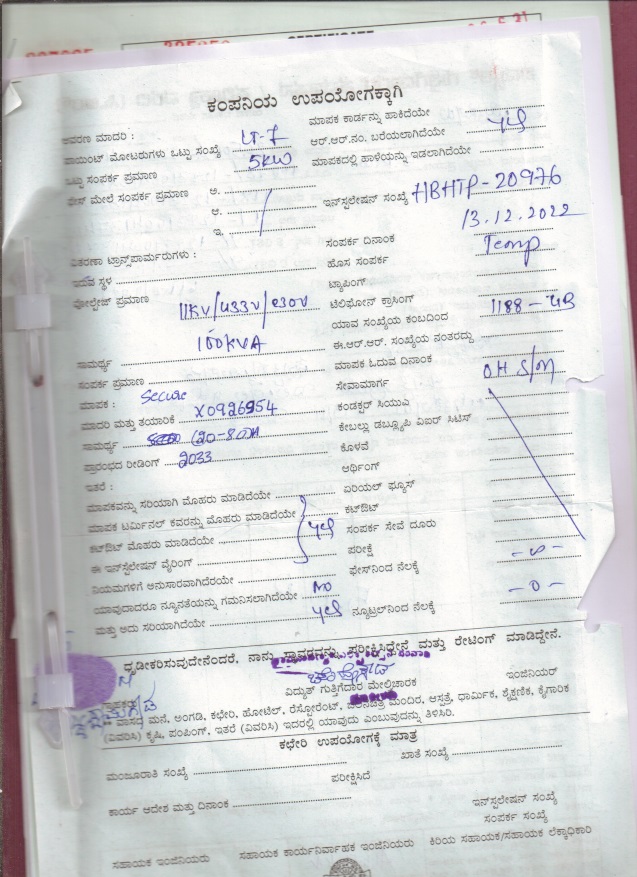 CERTIFICATE
ಕಂಪನಿಯ ಉಪಯೋಗಕ್ಕಾಗಿ
ಆವರಣ ಮಾದರಿ : LT-7
ಪಾಯಿಂಟ್ ಮೋಟರುಗಳು ಒಟ್ಟು ಸಂಖ್ಯೆ
ಒಟ್ಟು ಸಂಪರ್ಕ ಪ್ರಮಾಣ 5KW
ಫೇಸ್ ಮೇಲೆ ಸಂಪರ್ಕ ಪ್ರಮಾಣ ಅ.
ಆ.
ಇ.
ವಿತರಣಾ ಟ್ರಾನ್ಸ್‌ಪಾರ್ಮರುಗಳು :
ಇರುವ ಸ್ಥಳ
ವೋಲ್ಟೇಜ್ ಪ್ರಮಾಣ 11KV/433V/230V
ಸಾಮರ್ಥ್ಯ 100KVA
ಸಂಪರ್ಕ ಪ್ರಮಾಣ
ಮಾಪಕ : Secure
ಮಾದರಿ ಮತ್ತು ತಯಾರಿಕೆ X0926954
ಸಾಮರ್ಥ್ಯ (20-80)A
ಪ್ರಾರಂಭದ ರೀಡಿಂಗ್ 2033
ಇತರೆ :
ಮಾಪಕವನ್ನು ಸರಿಯಾಗಿ ಮೊಹರು ಮಾಡಿದೆಯೇ
ಮಾಪಕ ಟರ್ಮಿನಲ್ ಕವರನ್ನು ಮೊಹರು ಮಾಡಿದೆಯೇ
ಕಟ್‌ಔಟ್ ಮೊಹರು ಮಾಡಿದೆಯೇ yes
ಈ ಇನ್‌ಸ್ಟಲೇಷನ್ ವೈರಿಂಗ್
ನಿಯಮಗಳಿಗೆ ಅನುಸಾರವಾಗಿದೆಯೇ
ಯಾವುದಾದರೂ ನ್ಯೂನತೆಯನ್ನು ಗಮನಿಸಲಾಗಿದೆಯೇ No
ಮತ್ತು ಅದು ಸರಿಯಾಗಿದೆಯೇ yes
ಮಾಪಕ ಕಾರ್ಡನ್ನು ಹಾಕಿದೆಯೇ
ಆರ್.ಆರ್.ನಂ. ಬರೆಯಲಾಗಿದೆಯೇ yes
ಮಾಪಕದಲ್ಲಿ ಹಾಳೆಯನ್ನು ಇಡಲಾಗಿದೆಯೇ
ಇನ್‌ಸ್ಟಲೇಷನ್ ಸಂಖ್ಯೆ HBHTP-20976
ಸಂಪರ್ಕ ದಿನಾಂಕ 13.12.2022
ಹೊಸ ಸಂಪರ್ಕ Temp
ಟ್ಯಾಪಿಂಗ್
ಟೆಲಿಫೋನ್ ಕ್ರಾಸಿಂಗ್
ಯಾವ ಸಂಖ್ಯೆಯ ಕಂಬದಿಂದ
ಈ.ಆರ್.ಆರ್. ಸಂಖ್ಯೆಯ ನಂತರದ್ದು
ಮಾಪಕ ಓದುವ ದಿನಾಂಕ
ಸೇವಾಮಾರ್ಗ OH S/M
ಕಂಡಕ್ಟರ್ ಸಿಯುವಿ
ಕೇಬಲ್ಲು ಡಬ್ಲ್ಯೂಪಿ ವಿಐಆರ್ ಸಿಟಿಸ್
ಕೊಳವೆ
ಆರ್ಥಿಂಗ್
ಏರಿಯಲ್ ಫ್ಯೂಸ್
ಕಟ್‌ಔಟ್
ಸಂಪರ್ಕ ಸೇವೆ ದೂರು
ಪರೀಕ್ಷೆ
ಫೇಸ್‌ನಿಂದ ನೆಲಕ್ಕೆ - ∞ -
ನ್ಯೂಟ್ರಲ್‌ನಿಂದ ನೆಲಕ್ಕೆ - 0 -
ಧೃಡೀಕರಿಸುವುದೇನೆಂದರೆ, ನಾನು ಸ್ಥಾವರವನ್ನು ಪರೀಕ್ಷಿಸಿದ್ದೇನೆ ಮತ್ತು ರೇಟಿಂಗ್ ಮಾಡಿದ್ದೇನೆ.
ವಿದ್ಯುತ್ ಗುತ್ತಿಗೆದಾರ ಮೇಲ್ವಿಚಾರಕ
ಇಂಜಿನಿಯರ್
ವಾಸದ ಮನೆ, ಅಂಗಡಿ, ಕಛೇರಿ, ಹೋಟೆಲ್, ರೆಸ್ಟೋರೆಂಟ್, ಮಂದಿರ, ಆಸ್ಪತ್ರೆ, ಧಾರ್ಮಿಕ, ಶೈಕ್ಷಣಿಕ, ಕೈಗಾರಿಕೆ
(ವಿವರಿಸಿ) ಕೃಷಿ, ಪಂಪಿಂಗ್, ಇತರೆ (ವಿವರಿಸಿ) ಇದರಲ್ಲಿ ಯಾವುದು ಎಂಬುವುದನ್ನು ತಿಳಿಸಿರಿ.
ಕಛೇರಿ ಉಪಯೋಗಕ್ಕೆ ಮಾತ್ರ
ಮಂಜೂರಾತಿ ಸಂಖ್ಯೆ
ಖಾತೆ ಸಂಖ್ಯೆ
ಪರೀಕ್ಷಿಸಿದೆ
ಕಾರ್ಯ ಆದೇಶ ಮತ್ತು ದಿನಾಂಕ
ಇನ್‌ಸ್ಟಲೇಷನ್ ಸಂಖ್ಯೆ
ಸಂಪರ್ಕ ಸಂಖ್ಯೆ
ಸಹಾಯಕ ಇಂಜಿನಿಯರು ಸಹಾಯಕ ಕಾರ್ಯನಿರ್ವಾಹಕ ಇಂಜಿನಿಯರು ಕಿರಿಯ ಸಹಾಯಕ/ಸಹಾಯಕ ಲೆಕ್ಕಾಧಿಕಾರಿ